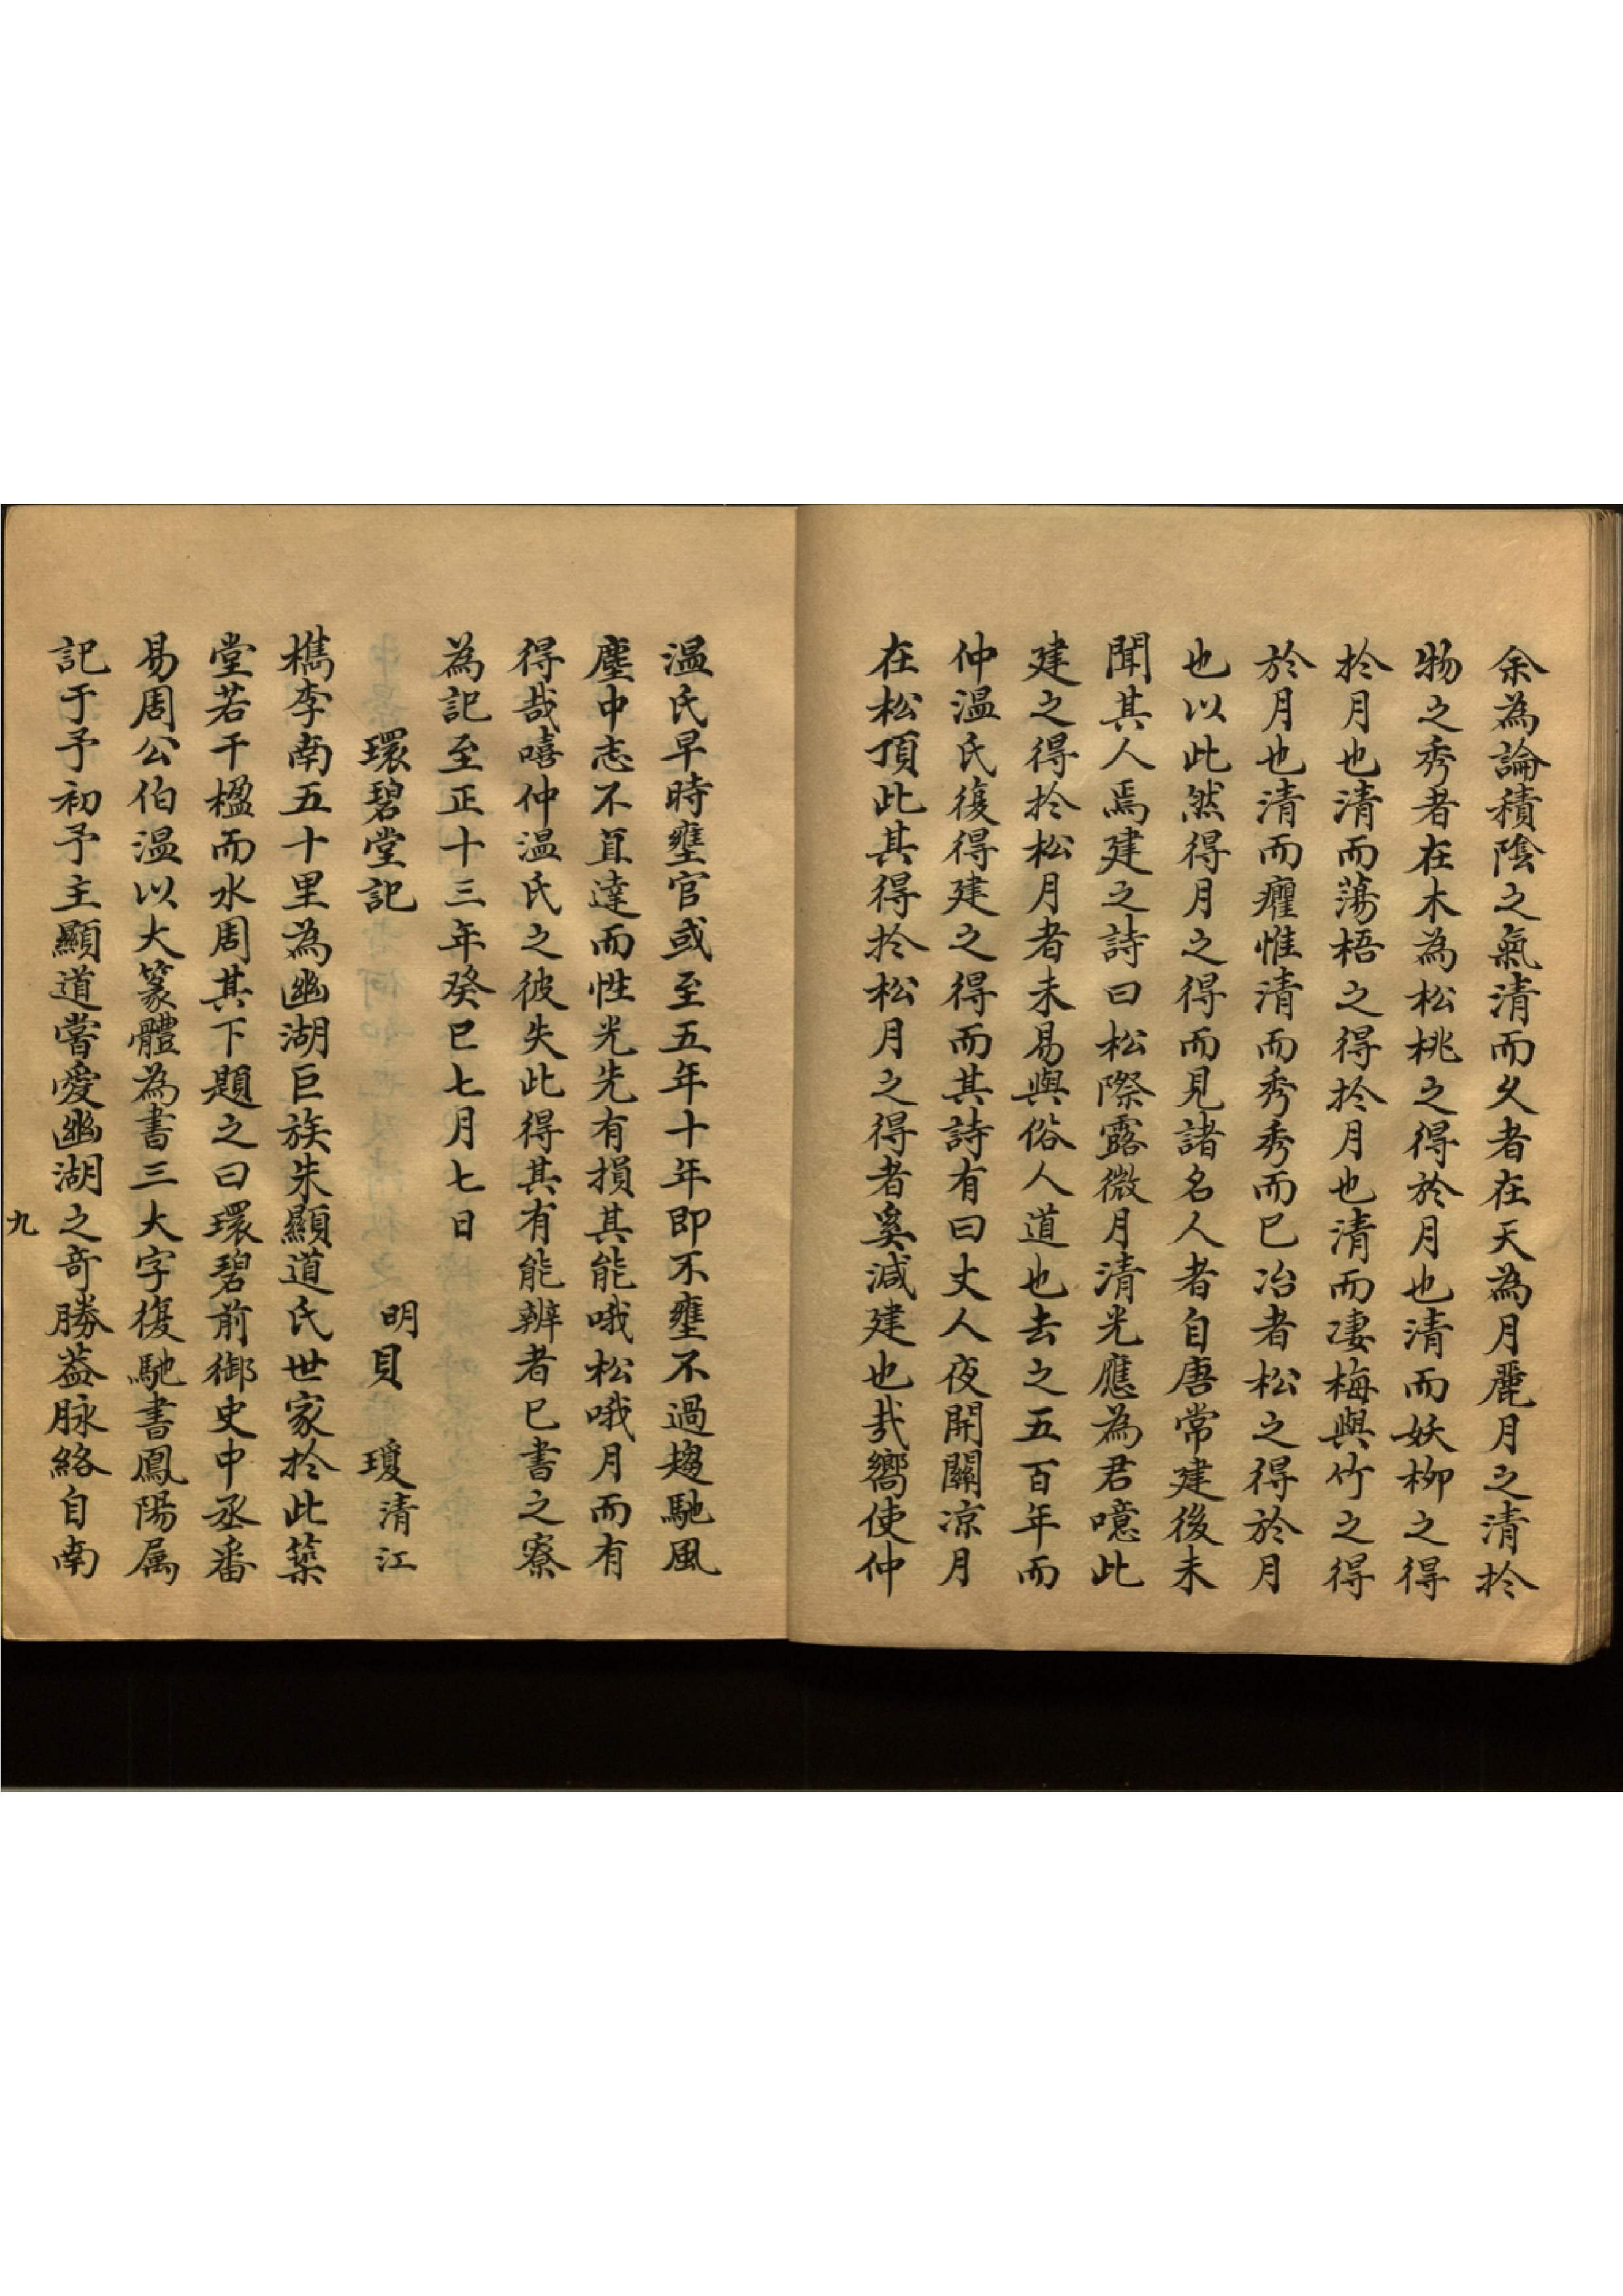 余為論積陰之氣清而久者在天為月麗月之清於
物之秀者在木為松桃之得於月也清而妖柳之得
於月也清而蕩梧之得於月也清而凄梅與竹之得
於月也清而癯惟清而秀秀而已冶者松之得於月
也以此然得月之得而見諸名人者自唐常建後未
聞其人焉建之詩曰松際露微月清光應為君噫此
建之得於松月者未易與俗人道也去之五百年而
仲温氏復得建之得而其詩有曰丈人夜開關凉月
在松頂此其得於松月之得者奚減建也㢤嚮使仲
温氏早時壅官或至五年十年即不壅不過趨馳風
塵中志不直達而性光先有損其能哦松哦月而有
得哉嘻仲温氏之彼失此得其有能辨者已書之寮
為記至正十三年癸巳七月七日
環碧堂記 明貝 瓊清江
檇李南五十里為幽湖巨族朱顯道氏世家於此築
堂若干楹而水周其下題之曰環碧前御史中丞番
易周公伯温以大篆體為書三大字復馳書鳳陽属
記于予初予主顯道嘗愛幽湖之竒勝葢脉絡自南
九